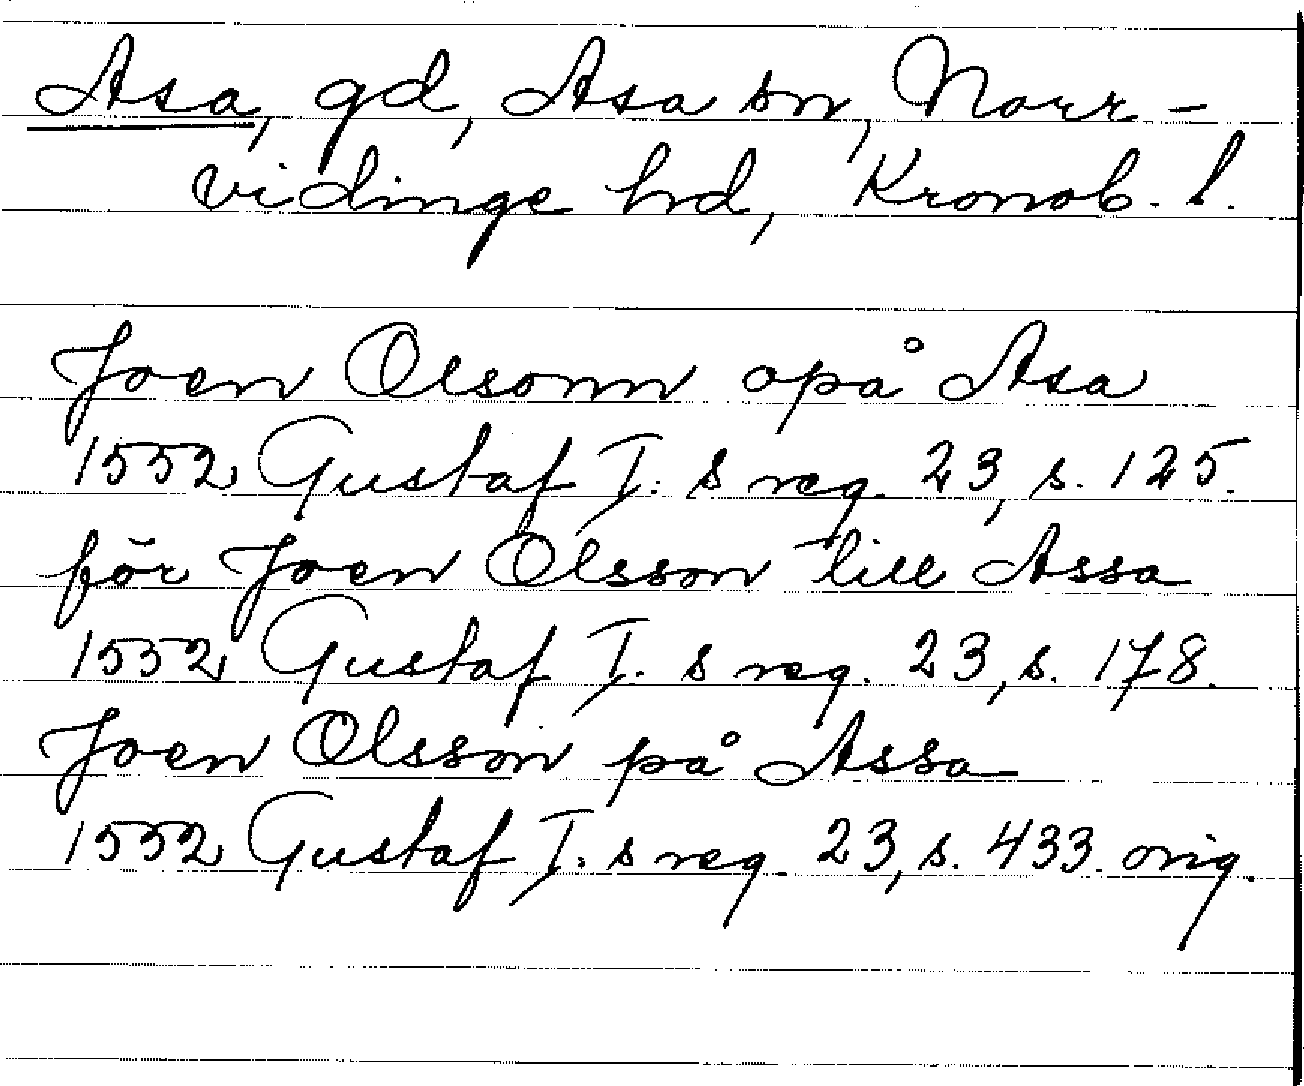 Asa, gd, Asa sn, Norr-
vidinge hd, Kronob. l.
Joen Olsonn opå Asa
1552 Gustaf I:s reg. 23, s. 125.
för Joen Olsson till Assa
1552 Gustaf I.s reg. 23, s. 178.
Joen Olsson på Assa
1552 Gustaf I:s reg. 23, s. 433. orig.